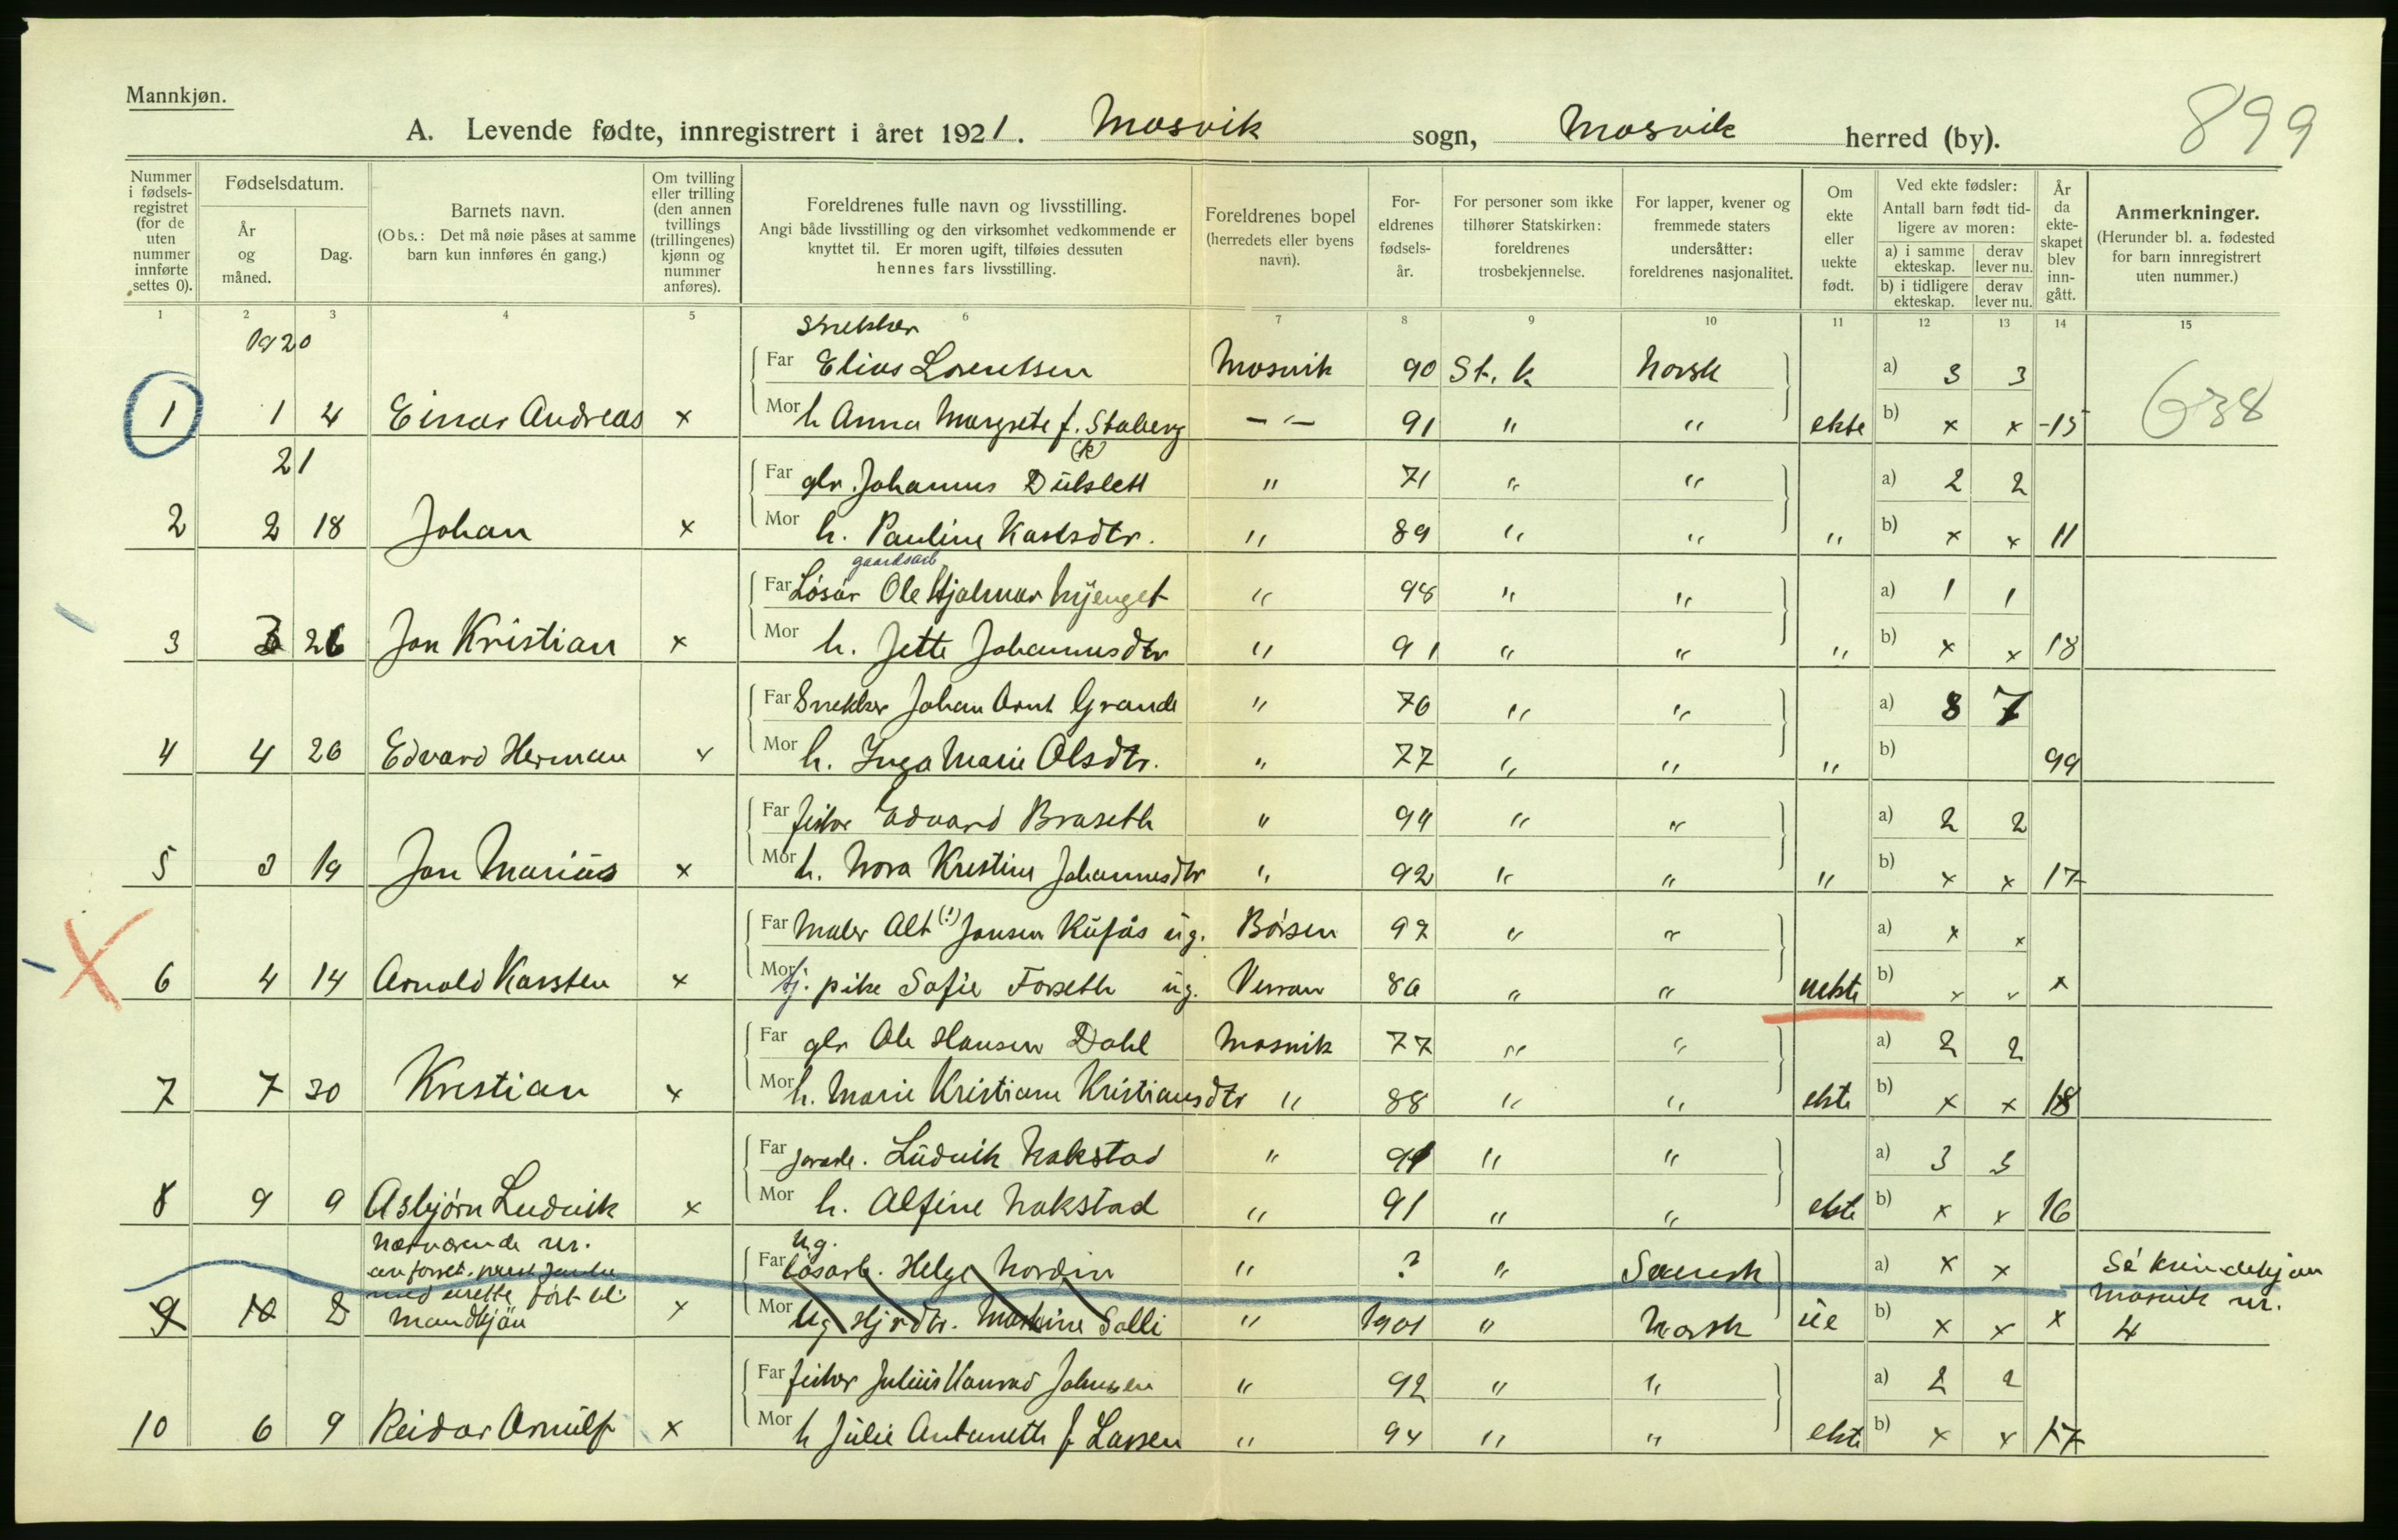 Mannkjøn.
899
A. Levende fødte, innregistrert i året 1921. Mosvik sogn, Mosvik herred (by).
Nummer i fødselsregistret (for de uten nummer innførte settes 0).
Fødselsdatum.
År og måned.
Dag.
Barnets navn.
(Obs.: Det må nøie påses at samme barn kun innføres én gang.)
Om tvilling eller trilling (den annen tvillings (trillingenes) kjønn og nummer anføres).
Foreldrenes fulle navn og livsstilling.
Angi både livsstilling og den virksomhet vedkommende er knyttet til. Er moren ugift, tilføies dessuten hennes fars livsstilling.
Foreldrenes bopel (herredets eller byens navn).
Foreldrenes fødselsår.
For personer som ikke tilhører Statskirken: foreldrenes trosbekjennelse.
For lapper, kvener og fremmede staters undersåtter: foreldrenes nasjonalitet.
Om ekte eller uekte født.
Ved ekte fødsler: Antall barn født tidligere av moren:
a) i samme ekteskap. derav lever nu.
b) i tidligere ekteskap. derav lever nu.
År da ekteskapet blev inngått.
Anmerkninger.
(Herunder bl. a. fødested for barn innregistrert uten nummer.)
1 2 3 4 5 6 7 8 9 10 11 12 13 14 15
1920
Snekker
Far Elias Lorentsen Mosvik 90 St. k. Norsk a) 3 3
638
1 1 4 Einar Andreas × Mor h Anna Margrete f. Staberg — " — 91 " " ekte b) × × -15
(k)
21
Far gbr. Johannes Dülslett " 71 " " a) 2 2
2 2 18 Johan × Mor h. Pauline Karlsdtr. " 89 " " " b) × × 11
gaardsarb
Far Løsar Ole Hjalmar Nyenget " 98 " " a) 1 1
3 3 26 Jon Kristian × Mor h. Jette Johannesdtr " 91 " " " b) × × 18
Far Snekker Johan Arnt Grande " 76 " " a) 8 7
4 4 26 Edvard Herman × Mor h. Inga Marie Olsdtr. " 77 " " " b) 99
Far fisker Edvard Braseth " 94 " " a) 2 2
5 3 19 Jon Mariüs × Mor h. Nora Kristine Johannesdtr " 92 " " " b) × × 17
Far Maler Alt (!) Jonsen Küfås üg. Börsen 97 " " a) × ×
6 4 14 Arnold Karsten × Mor tj. pike Sofie Forseth üg. Verran 86 " " uekte b) × × ×
Far gbr Ole Hansen Dahl Mosvik 77 " " a) 2 2
7 7 30 Kristian × Mor h. Marie Kristiane Kristiansdtr " 88 " " ekte b) × × 18
Far Lüdvik Nakstad " 91 " " a) 3 3
8 9 9 Asbjørn Ludvik × Mor h. Alfine Nakstad " 91 " " ekte b) × × 16
Nærværende nr.
ug.
Far løsarb. Helge Nordin " ? " Svensk a) × × Se kvindekjøn
Mosvik nr.
9 12 2 Mandkjön × Mor Ug Hjvdtr. Solli " 1901 " Norsk üe b) × × × 4
Far fisker Juliüs Konrad Johnsen " 92 " " a) 2 2
10 6 9 Reidar Arnülf × Mor h Jülie Antonette f Larsen " 94 " " ekte b) × × 17